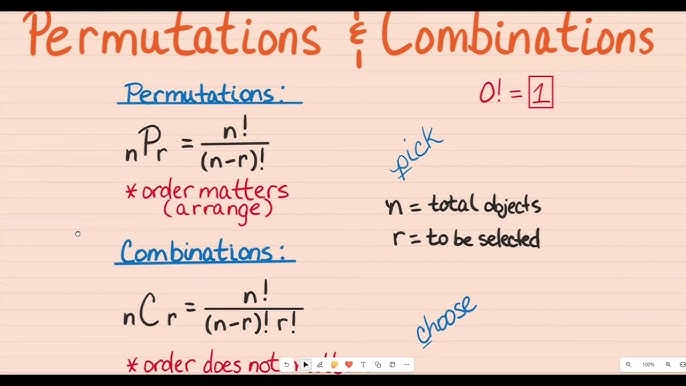 Permutations & Combinations
Permutations:
0! = 1
nPr = n!/(n-r)!
pick
*order matters
(arrange)
n = total objects
r = to be selected
Combinations:
nCr = n!/(n-r)! r!
choose
*order does not
100%